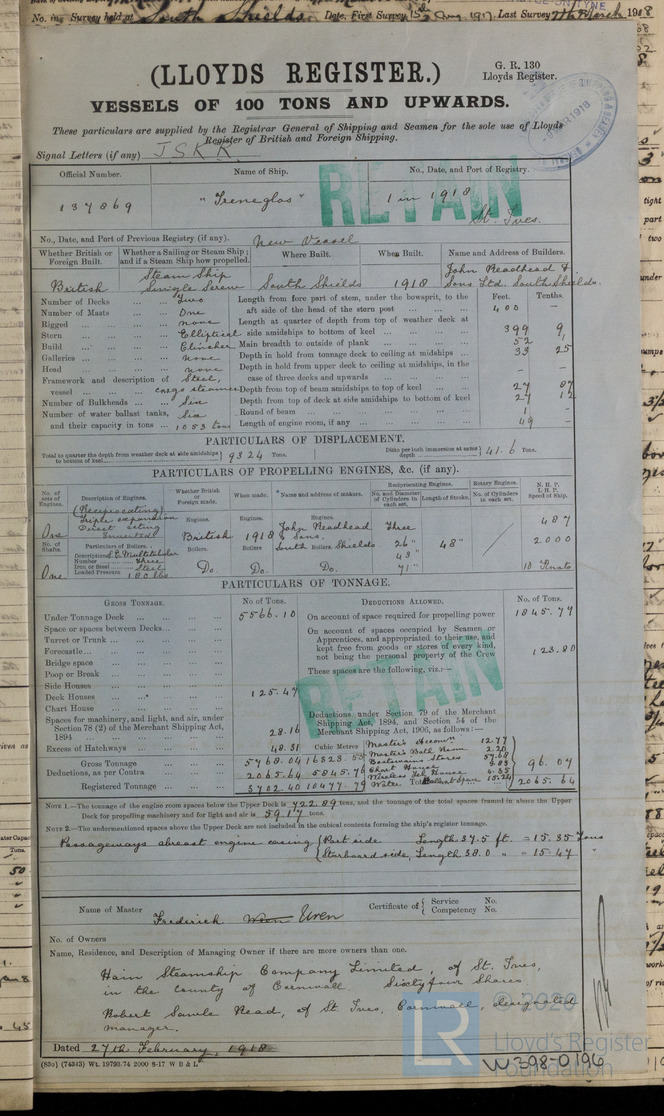 No. in Survey held at South Shields Date, First Survey 15th Aug 1917 Last Survey 7th March 1918
(LLOYDS REGISTER.)
G. R. 130
Lloyds Register.
VESSELS OF 100 TONS AND UPWARDS.
These particulars are supplied by the Registrar General of Shipping and Seamen for the sole use of Lloyds
Register of British and Foreign Shipping.
Signal Letters (if any) JSKR
RETAIN
Official Number. Name of Ship. No., Date, and Port of Registry.
137869 "Treneglos" 1 in 1918
St. Ives.
No., Date, and Port of Previous Registry (if any). New Vessel
Whether British or Foreign Built. Whether a Sailing or Steam Ship; and if a Steam Ship how propelled. Where Built. When Built. Name and Address of Builders.
British Steam Ship Single Screw South Shields 1918 John Readhead & Sons Ltd. South Shields.
Number of Decks ... ... Two Length from fore part of stem, under the bowsprit, to the Feet. Tenths.
Number of Masts ... ... One aft side of the head of the stern post ... 400 –
Rigged ... ... none Length at quarter of depth from top of weather deck at
Stern ... ... Elliptical side amidships to bottom of keel ... 399 9
Build ... ... Clincher Main breadth to outside of plank ... 52 1
Galleries ... ... none Depth in hold from tonnage deck to ceiling at midships ... 33 25
Head ... ... none Depth in hold from upper deck to ceiling at midships, in the
Framework and description of Steel, case of three decks and upwards ... – –
vessel ... cargo steamer Depth from top of beam amidships to top of keel ... 27 07
Number of Bulkheads ... Six Depth from top of deck at side amidships to bottom of keel 27 12
Number of water ballast tanks, Six Round of beam ... 1 –
and their capacity in tons ... 1053 tons Length of engine room, if any ... 49 –
PARTICULARS OF DISPLACEMENT.
Total to quarter the depth from weather deck at side amidships to bottom of keel 9324 Tons. Ditto per inch immersion at same depth 41.6 Tons.
PARTICULARS OF PROPELLING ENGINES, &c. (if any).
No. of sets of Engines. Description of Engines. Whether British or Foreign made. When made. Name and address of makers. Reciprocating Engines. No. and Diameter of Cylinders in each set. Length of Stroke. Rotary Engines. No. of Cylinders in each set. N. H. P. I. H. P. Speed of Ship.
One (Reciprocating) Triple expansion Direct acting Inverted Engines. British Engines. 1918 Engines. John Readhead & Sons, South Shields Three 26" 43" 71" 48" 487 2000
No. of Shafts. Particulars of Boilers. Boilers. Boilers Boilers.
Description S.E. Multitubular
Number Three
Iron or Steel Steel
One Loaded Pressure 180 lbs Do. Do. Do. 10 Knots
PARTICULARS OF TONNAGE.
GROSS TONNAGE. No of Tons. DEDUCTIONS ALLOWED. No. of Tons.
Under Tonnage Deck ... 5566.10 On account of space required for propelling power 1845.77
Space or spaces between Decks ... On account of spaces occupied by Seamen or
Turret or Trunk ... Apprentices, and appropriated to their use, and
Forecastle ... kept free from goods or stores of every kind,
Bridge space ... not being the personal property of the Crew 123.80
Poop or Break ... These spaces are the following, viz.:—
Side Houses ...
Deck Houses ... 125.47
Chart House ...
Spaces for machinery, and light, and air, under Section 78 (2) of the Merchant Shipping Act, 1894 ... 28.16 Deductions, under Section 79 of the Merchant Shipping Act, 1894, and Section 54 of the Merchant Shipping Act, 1906, as follows:—
Excess of Hatchways ... 48.31 Cubic Metres Master's Accom 12.77
Gross Tonnage 5768.04 Master's Bath Room 2.20
Deductions, as per Contra 2065.64 5845.76 Boatswains Stores Chart House 96.07
Registered Tonnage 3702.40 10477.79 Wireless Tel. House Water Ballast Space 2065.64
RETAIN
NOTE 1.—The tonnage of the engine room spaces below the Upper Deck is 722.89 tons, and the tonnage of the total spaces framed in above the Upper
Deck for propelling machinery and for light and air is 59.17 tons.
NOTE 2.—The undermentioned spaces above the Upper Deck are not included in the cubical contents forming the ship's register tonnage.
Passageways abreast engine casing Port side Length 37.5 ft. = 15.35 Tons
Starboard side, Length 38.0 " = 15.47 "
Name of Master Frederick Uren Certificate of Service No. Competency No.
No. of Owners
Name, Residence, and Description of Managing Owner if there are more owners than one.
Hain Steamship Company Limited, of St. Ives,
in the County of Cornwall Sixty four Shares.
Robert Sawle Read, of St Ives, Cornwall, designated
manager.
Dated 27th February, 1918
(83o) (74343) Wt. 19793.74 2000 8-17 W B & L
LR
2020
Lloyd's Register
Foundation
W398-0196